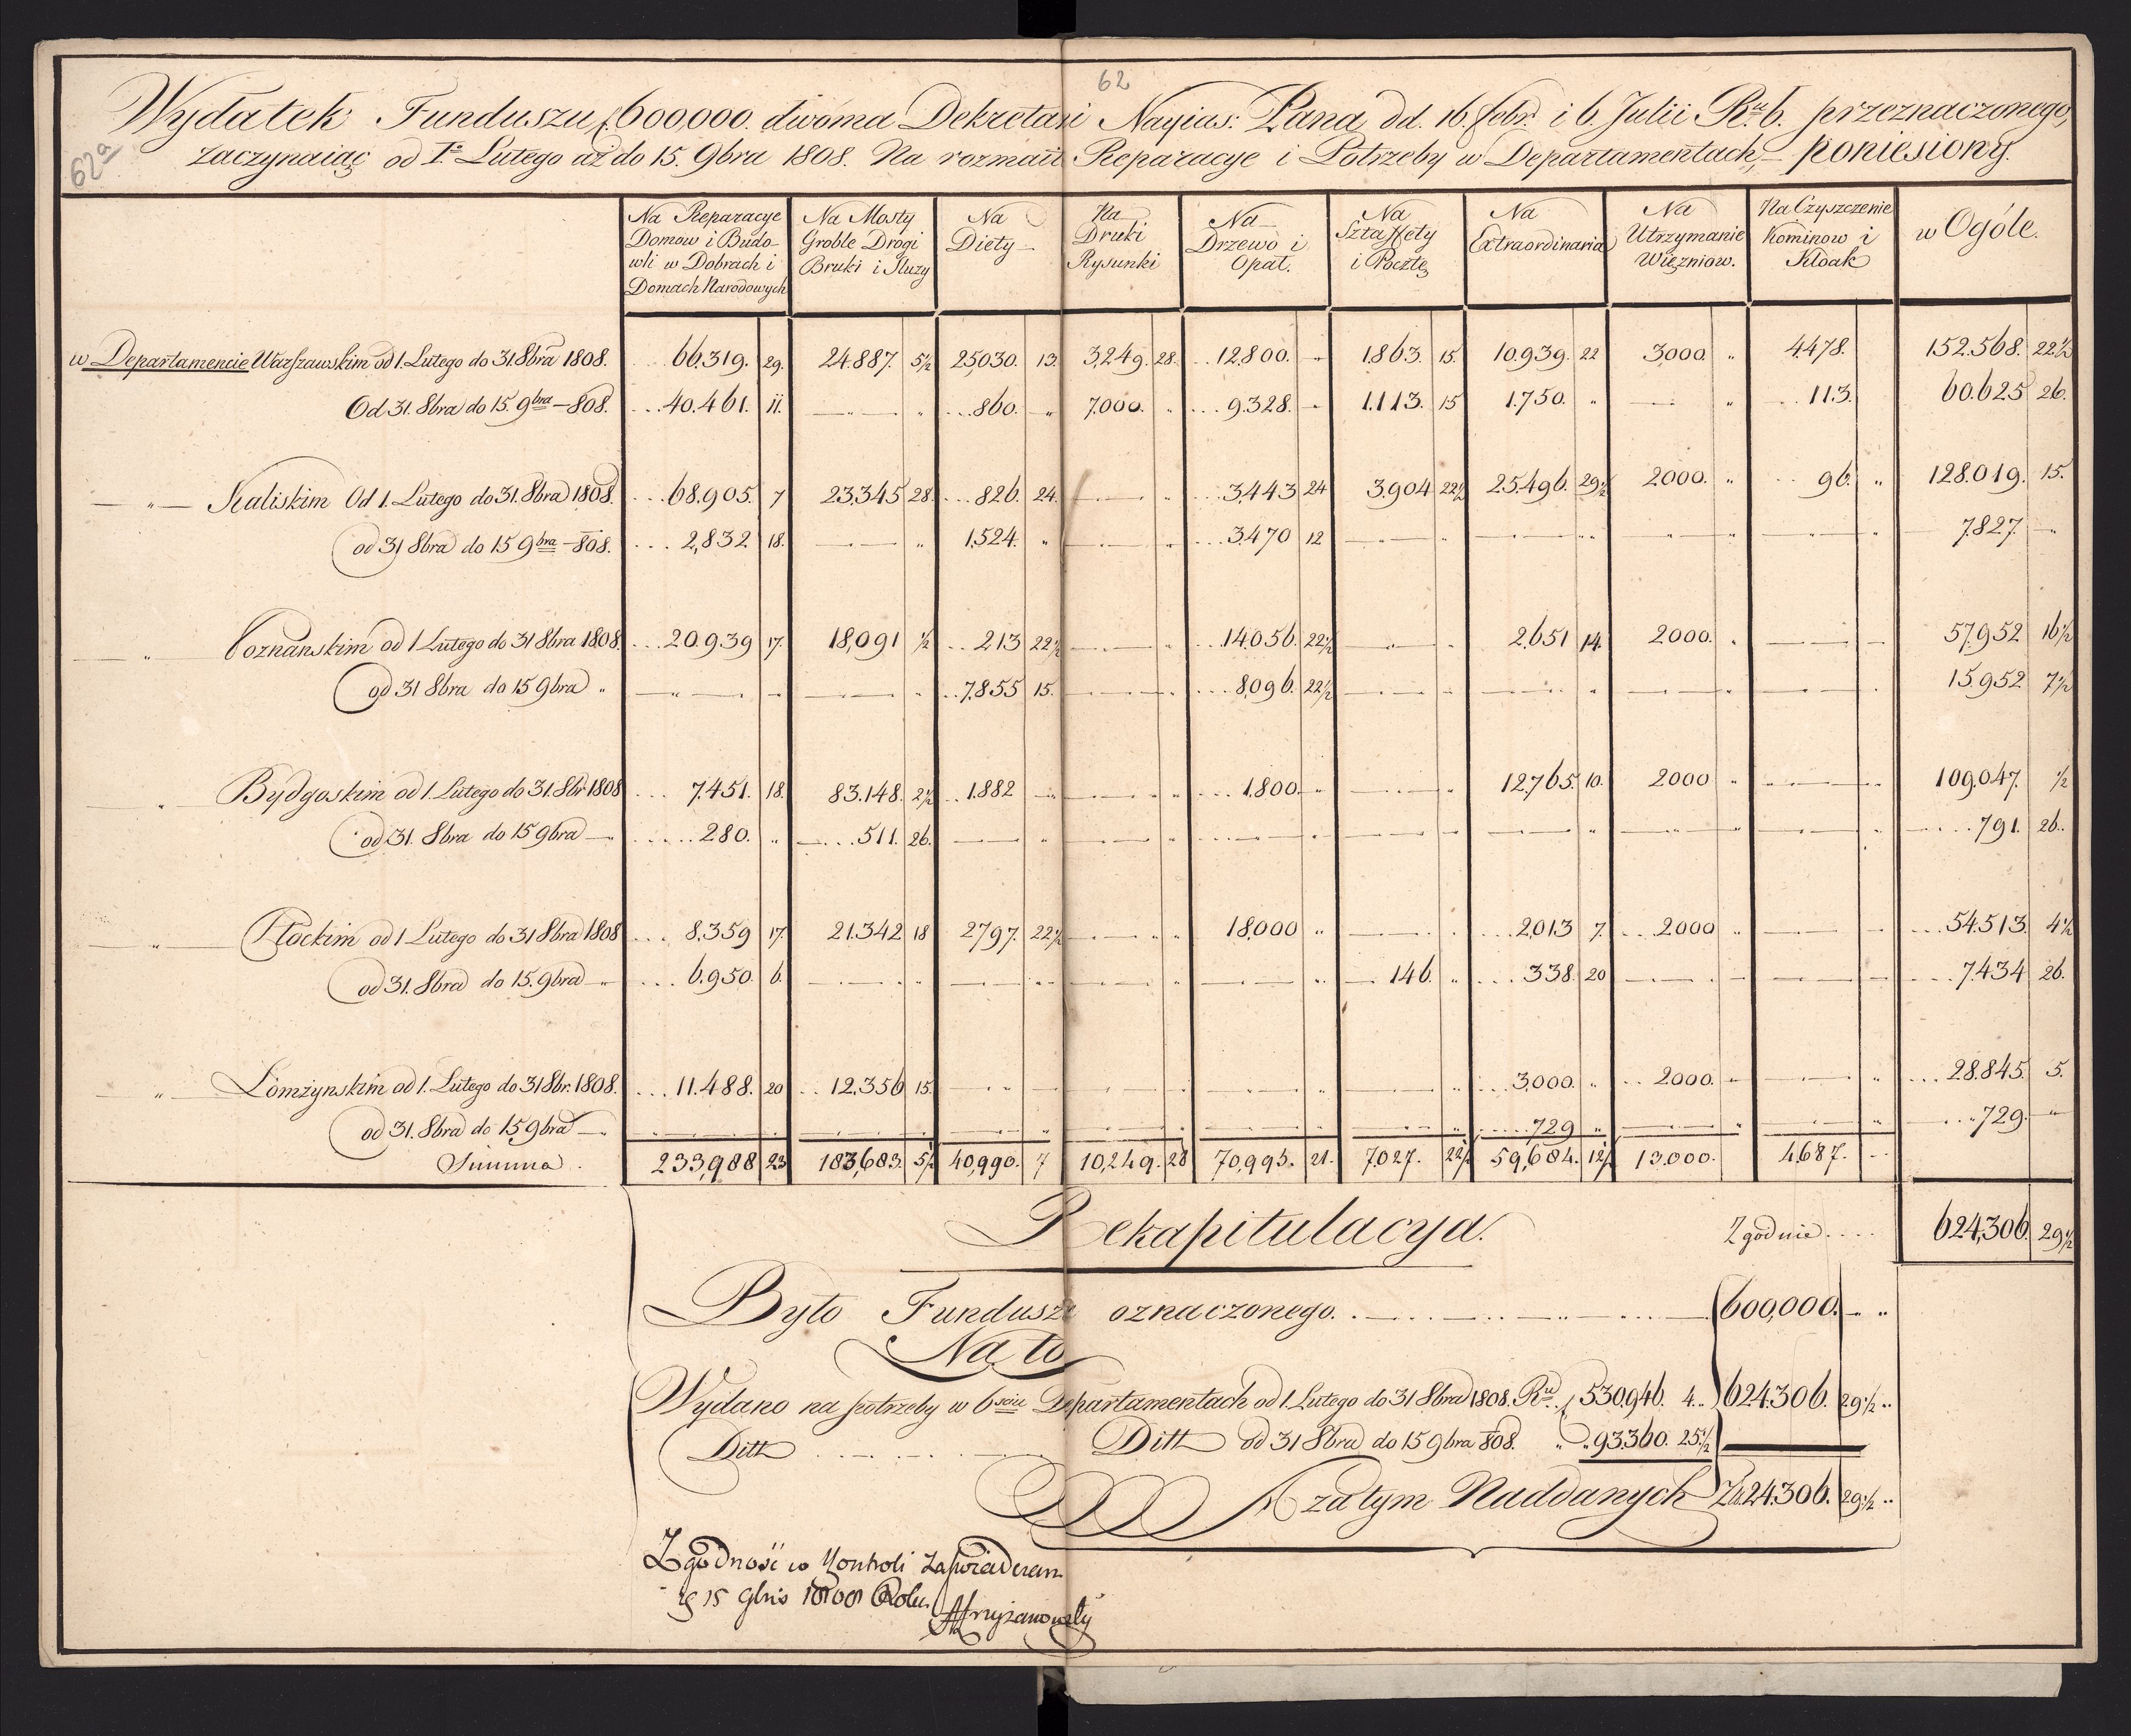 62
62a
Wydatek Funduszu f. 600,000. dwóma Dekretami Nayias: Pana dd. 16. Febr: i 6. Julii R. b. przeznaczonego,
zaczynaiąc od 1º Lutego aż do 15. 9bra 1808. Na rozmaite Reparacye i Potrzeby w Departamentach, – poniesiony.
Na Reparacye Domow i Budowli w Dobrach i Domach Narodowych | Na Mosty Groble Drogi Bruki i Sluzy | Na Diety | Na Druki Rysunki | Na Drzewo i Opał. | Na Sztaffety i Pocztę | Na Extraordinaria | Na Utrzymanie Więzniow. | Na Czyszczenie Kominow i Kloak | w Ogóle.
w Departamencie Warszawskim od 1. Lutego do 31. 8bra 1808. 66.319. 29. 24.887. 5½ 25,030. 13. 3,249. 28. 12.800. „ 1.863. 15. 10.939. 22 3,000. „ 4478. 152.568. 22½
Od 31. 8bra do 15. 9bra – 808. 40.461. 11. — „ 860. „ 7.000. „ 9.328. „ 1.113. 15 1.750. „ — „ 113. 60.625 26.
— „ — Kaliskim Od 1. Lutego do 31. 8bra 1808. 68.905. 7 23,345 28. 826. 24. — „ 3,443 24 3.904 22½ 25.496. 29½ 2000. „ 96. „ 128.019. 15.
od 31 8bra do 15 9bra – 808. 2,832 18. — „ 1,524. „ — „ 3.470 12 — „ — „ — „ — „ 7.827. —
— „ — Poznanskim od 1 Lutego do 31 8bra 1808. 20.939 17. 18,091 ½ 213 22½ — „ 14.056. 22½ — „ 2.651 14. 2000. „ — 57.952 16½
od 31 8bra do 15 9bra „ — „ — „ 7.855 15. — „ 8,096. 22½ — „ — „ — „ — „ 15.952 7½
— „ — Bydgoskim od 1. Lutego do 31. 8br 1808 7.451. 18. 83.148. 2½ 1.882 — — „ 1.800. „ — „ 12.765. 10. 2000 „ — „ 109.047. ½
od 31. 8bra do 15 9bra — 280. „ 511. 26. — „ — „ — „ — „ — „ — „ — „ 791. 26.
— „ — Płockim od 1 Lutego do 31 8bra 1808 8.359 17. 21.342 18 2797. 22½ — „ 18.000 „ — „ 2,013 7. 2000 „ — 54.513. 4½
od 31. 8bra do 15. 9bra — 6.950. 6. — „ — „ — „ — „ 146. „ 338. 20 — „ — 7.434 26.
— „ — Łomżynskim od 1. Lutego do 31 8br. 1808. 11.488. 20 12.356 15. — „ — „ — „ — „ 3,000. „ 2000. „ — „ 28.845. 5.
od 31. 8bra do 15 9bra — — „ — „ — „ — „ — „ — „ 729 „ — „ — „ 729. „
Summa. 233,988 23 183,683. 5½ 40,990. 7 10,249. 28 70,995. 21. 7.027. 22½ 59,684. 12½ 13.000. 4,687. –
Rekapitulacya.
Zgodnie .... 624,306. 29½
Było Funduszu oznaczonego. 600,000. — „
Na to
Wydano na potrzeby w 6ściu Departamentach od 1. Lutego do 31 8bra 1808. R. f. 530.946. 4. „ 624.306. 29½ „
Ditto Ditto od 31 8bra do 15 9bra 808. „ „ 93.360. 25½
A zatym Naddanych Zł. 24.306. 29½ „
Zgodność w Kontroli zaświadczam
15 9bris 1808 Roku